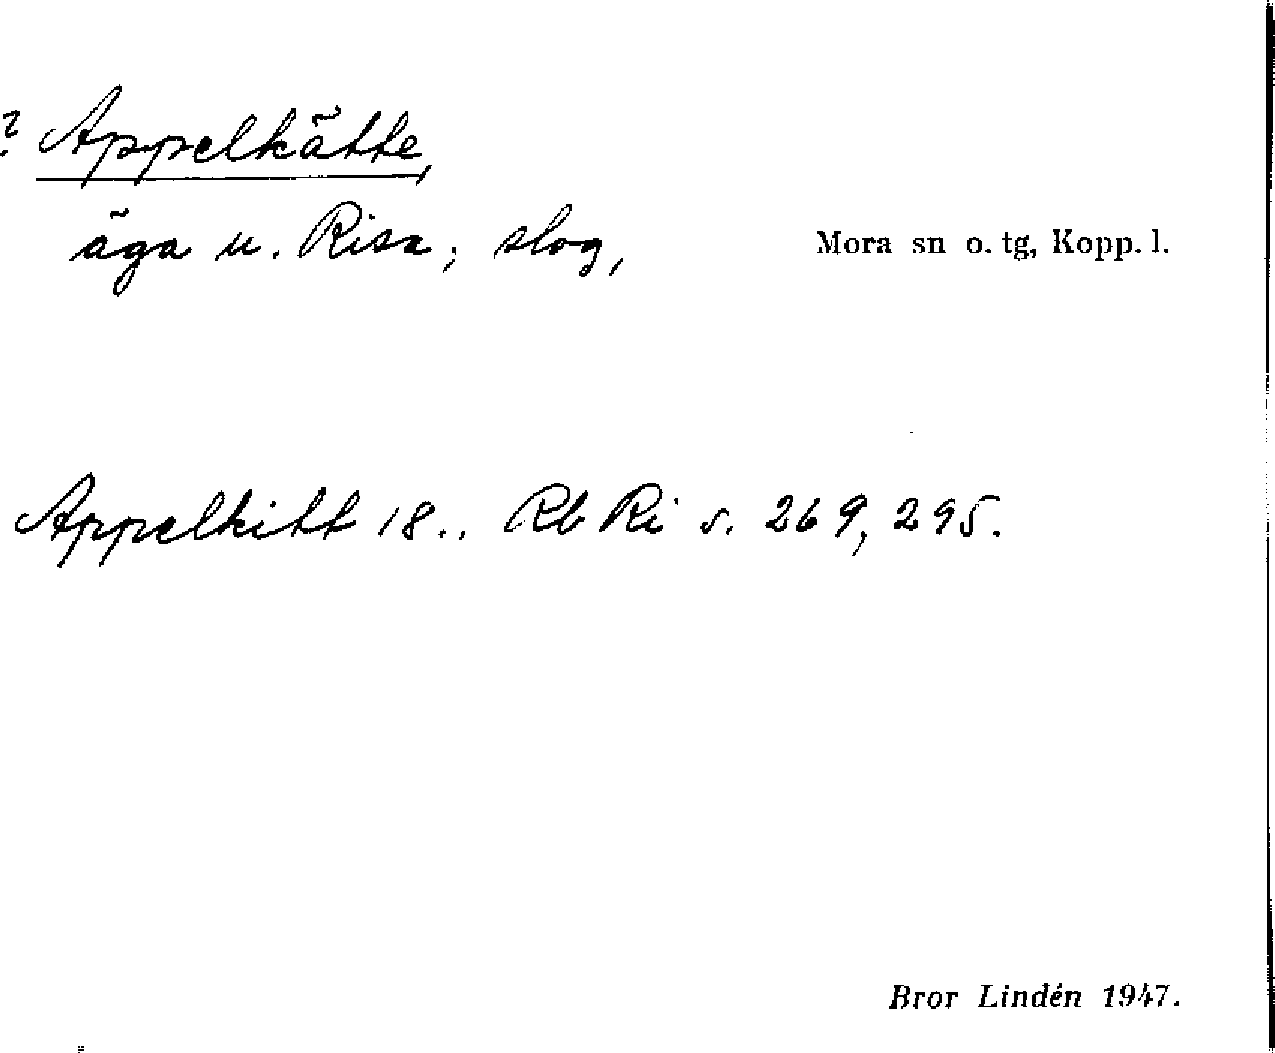 ? Appelkätte,
äga u. Risa; slog, Mora sn o. tg, Kopp. l.
Appelkitt 18.. Rb Ri s. 269, 295.
Bror Lindén 1947.